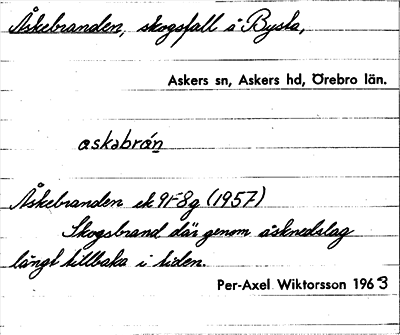 Åskebranden, skogsfall å Bysta,
Askers sn, Askers hd, Örebro län.
askabrán
Åskebranden ek 9F8g (1957)
Skogsbrand där genom åsknedslag
långt tillbaka i tiden.
Per-Axel Wiktorsson 1963